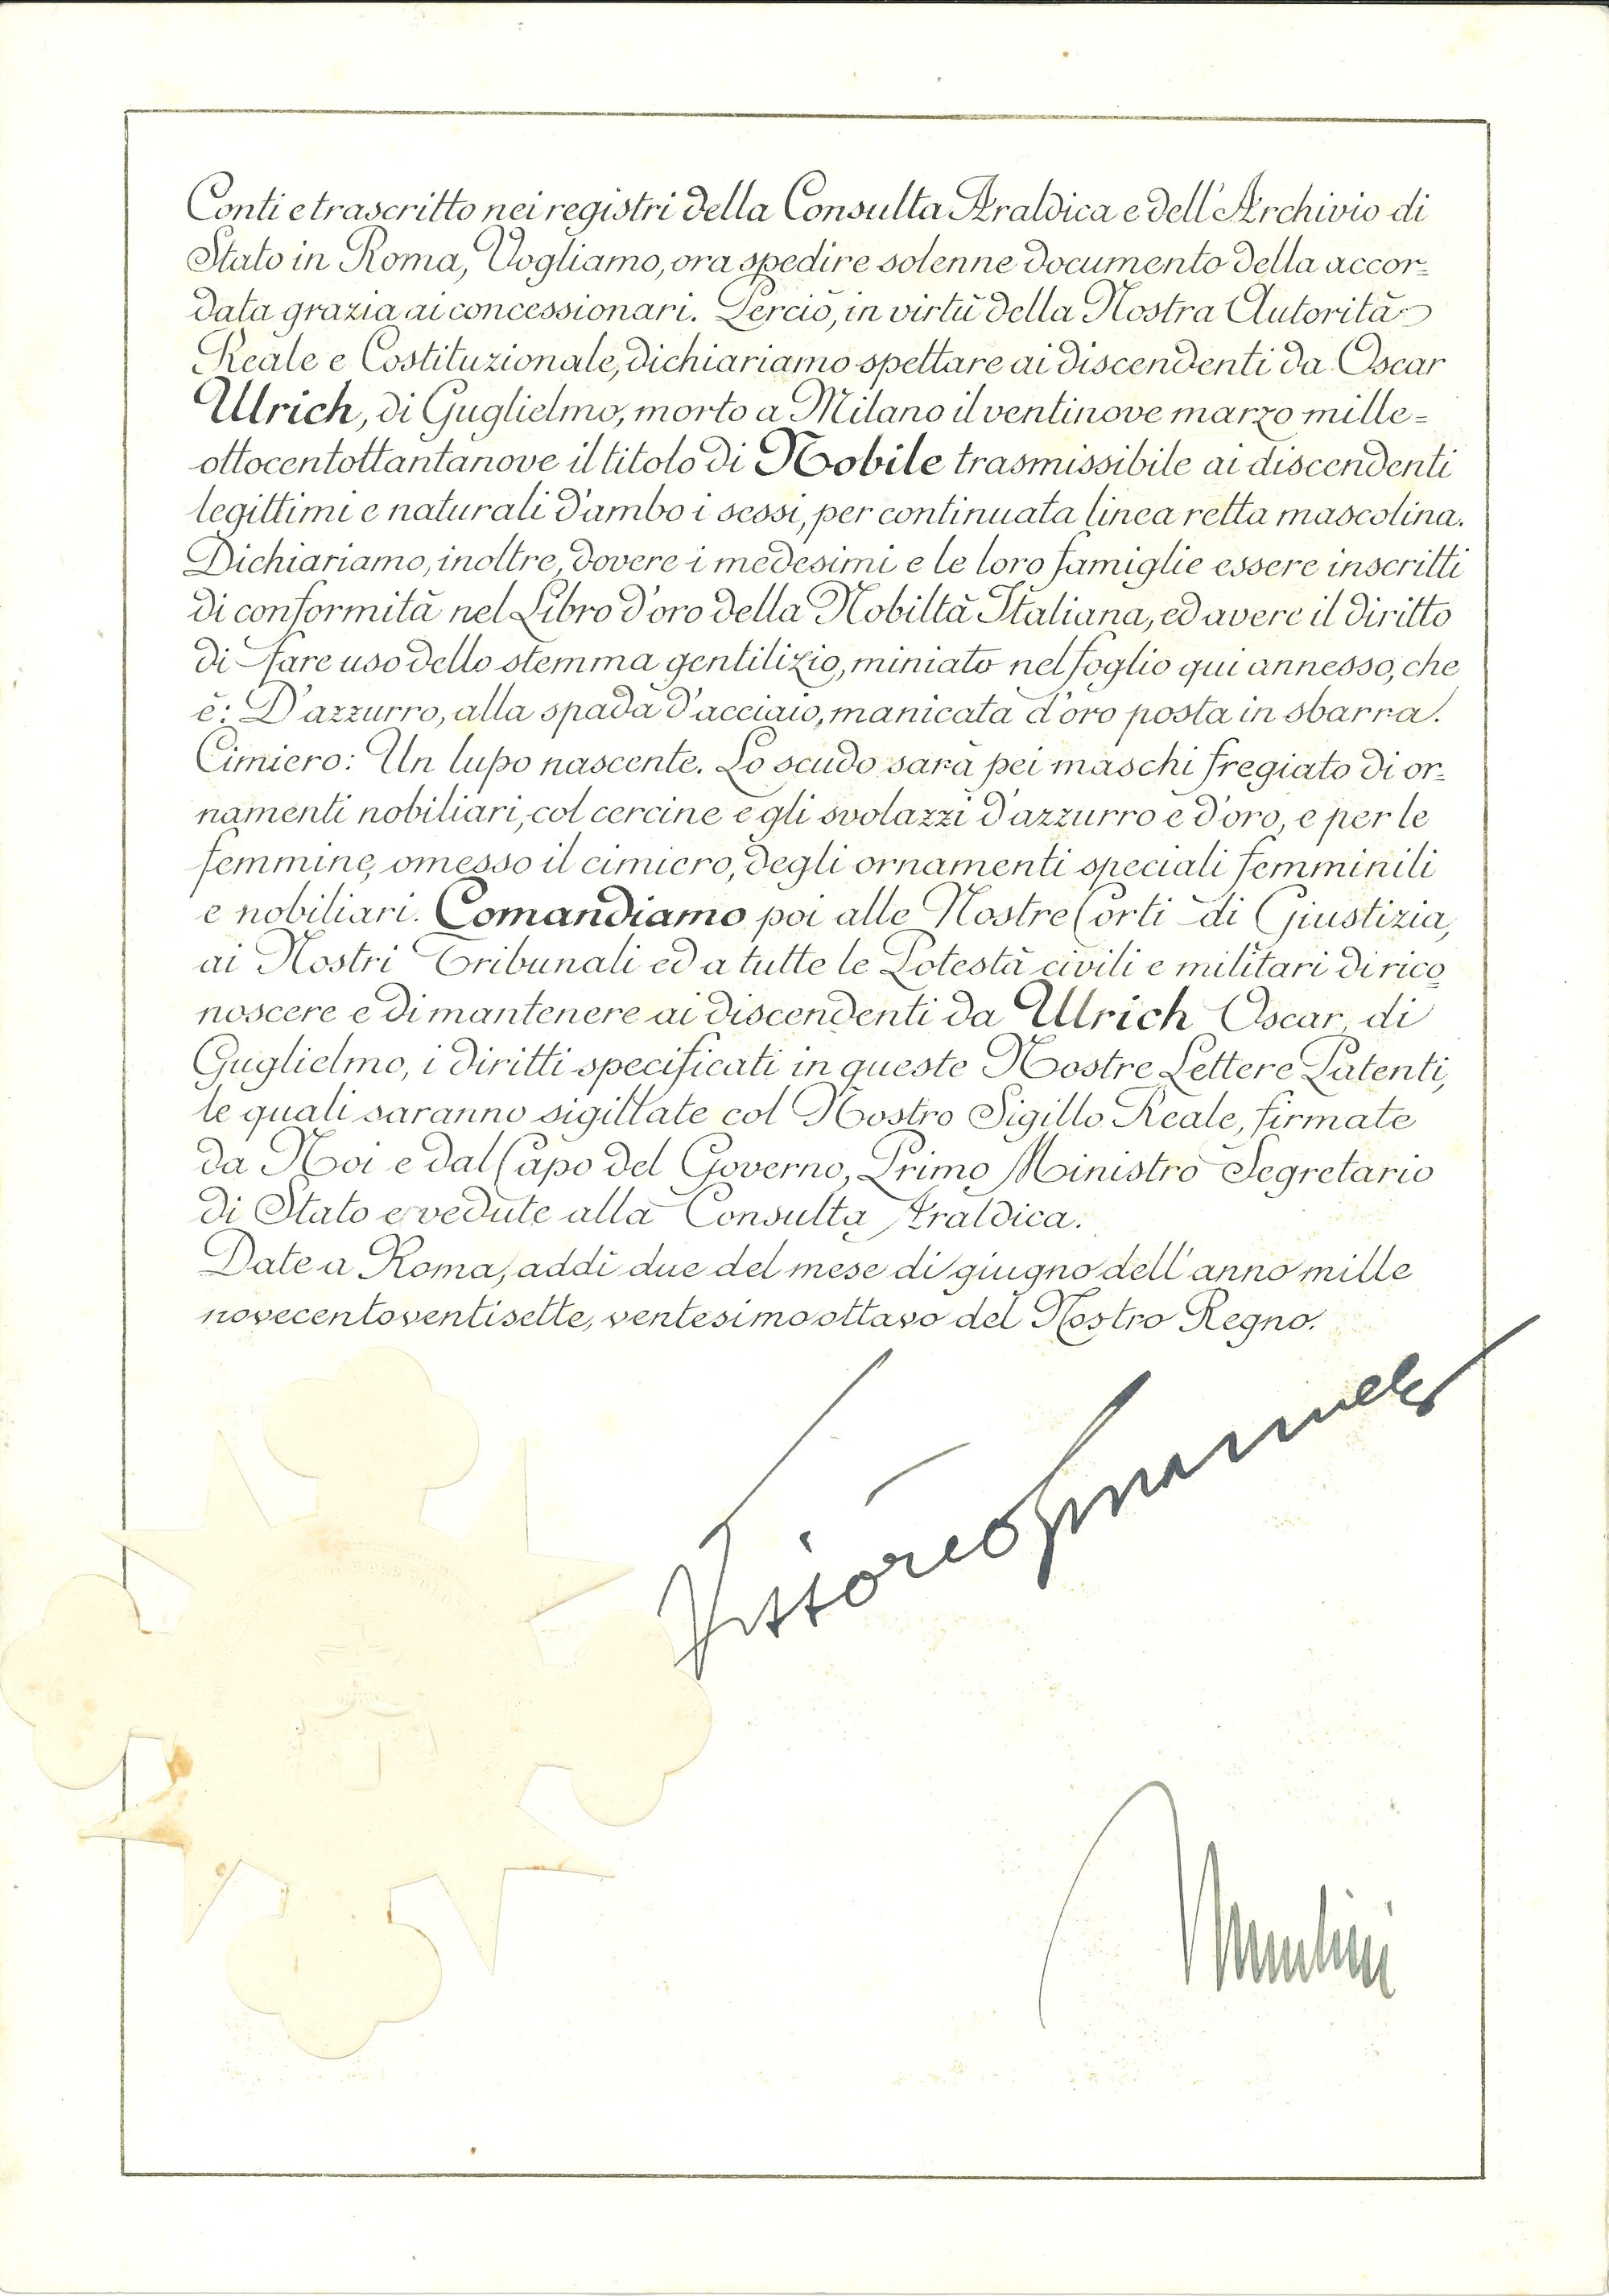 Conti e trascritto nei registri della Consulta Araldica e dell'Archivio di
Stato in Roma, Vogliamo, ora spedire solenne documento della accor=
data grazia ai concessionari. Perciò, in virtù della Nostra Autorità
Reale e Costituzionale, dichiariamo spettare ai discendenti da Oscar
Ulrich, di Guglielmo, morto a Milano il ventinove marzo mille=
ottocentottantanove il titolo di Nobile trasmissibile ai discendenti
legittimi e naturali d'ambo i sessi, per continuata linea retta mascolina.
Dichiariamo, inoltre, dovere i medesimi e le loro famiglie essere inscritti
di conformità nel Libro d'oro della Nobiltà Italiana, ed avere il diritto
di fare uso dello stemma gentilizio, miniato nel foglio qui annesso, che
è: D'azzurro, alla spada d'acciaio, manicata d'oro posta in sbarra.
Cimiero: Un lupo nascente. Lo scudo sarà pei maschi fregiato di or=
namenti nobiliari, col cercine e gli svolazzi d'azzurro e d'oro, e per le
femmine, omesso il cimiero, degli ornamenti speciali femminili
e nobiliari. Comandiamo poi alle Nostre Corti di Giustizia,
ai Nostri Tribunali ed a tutte le Potestà civili e militari di rico
noscere e di mantenere ai discendenti da Ulrich Oscar, di
Guglielmo, i diritti specificati in queste Nostre Lettere Patenti,
le quali saranno sigillate col Nostro Sigillo Reale, firmate
da Noi e dal Capo del Governo, Primo Ministro Segretario
di Stato e vedute alla Consulta Araldica.
Date a Roma, addì due del mese di giugno dell'anno mille
novecentoventisette, ventesimottavo del Nostro Regno.
Vittorio Emanuele
Mussolini